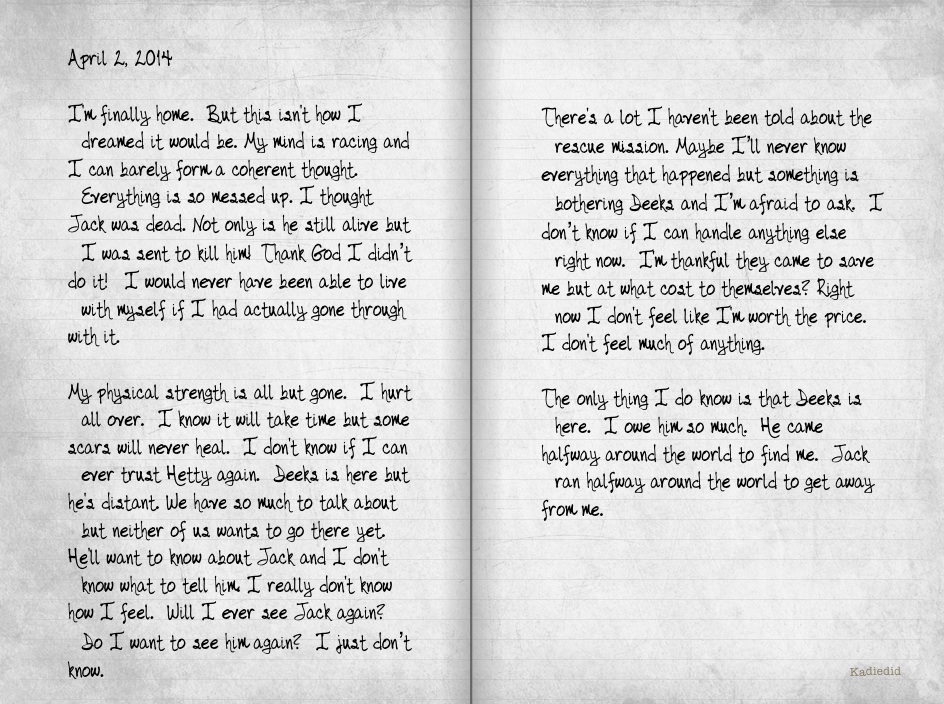 April 2, 2014
I'm finally home. But this isn't how I
dreamed it would be. My mind is racing and
I can barely form a coherent thought.
Everything is so messed up. I thought
Jack was dead. Not only is he still alive but
I was sent to kill him! Thank God I didn't
do it! I would never have been able to live
with myself if I had actually gone through
with it.
My physical strength is all but gone. I hurt
all over. I know it will take time but some
scars will never heal. I don't know if I can
ever trust Hetty again. Deeks is here but
he's distant. We have so much to talk about
but neither of us wants to go there yet.
He'll want to know about Jack and I don't
know what to tell him. I really don't know
how I feel. Will I ever see Jack again?
Do I want to see him again? I just don't
know.
There's a lot I haven't been told about the
rescue mission. Maybe I'll never know
everything that happened but something is
bothering Deeks and I'm afraid to ask. I
don't know if I can handle anything else
right now. I'm thankful they came to save
me but at what cost to themselves? Right
now I don't feel like I'm worth the price.
I don't feel much of anything.
The only thing I do know is that Deeks is
here. I owe him so much. He came
halfway around the world to find me. Jack
ran halfway around the world to get away
from me.
Kadiedid